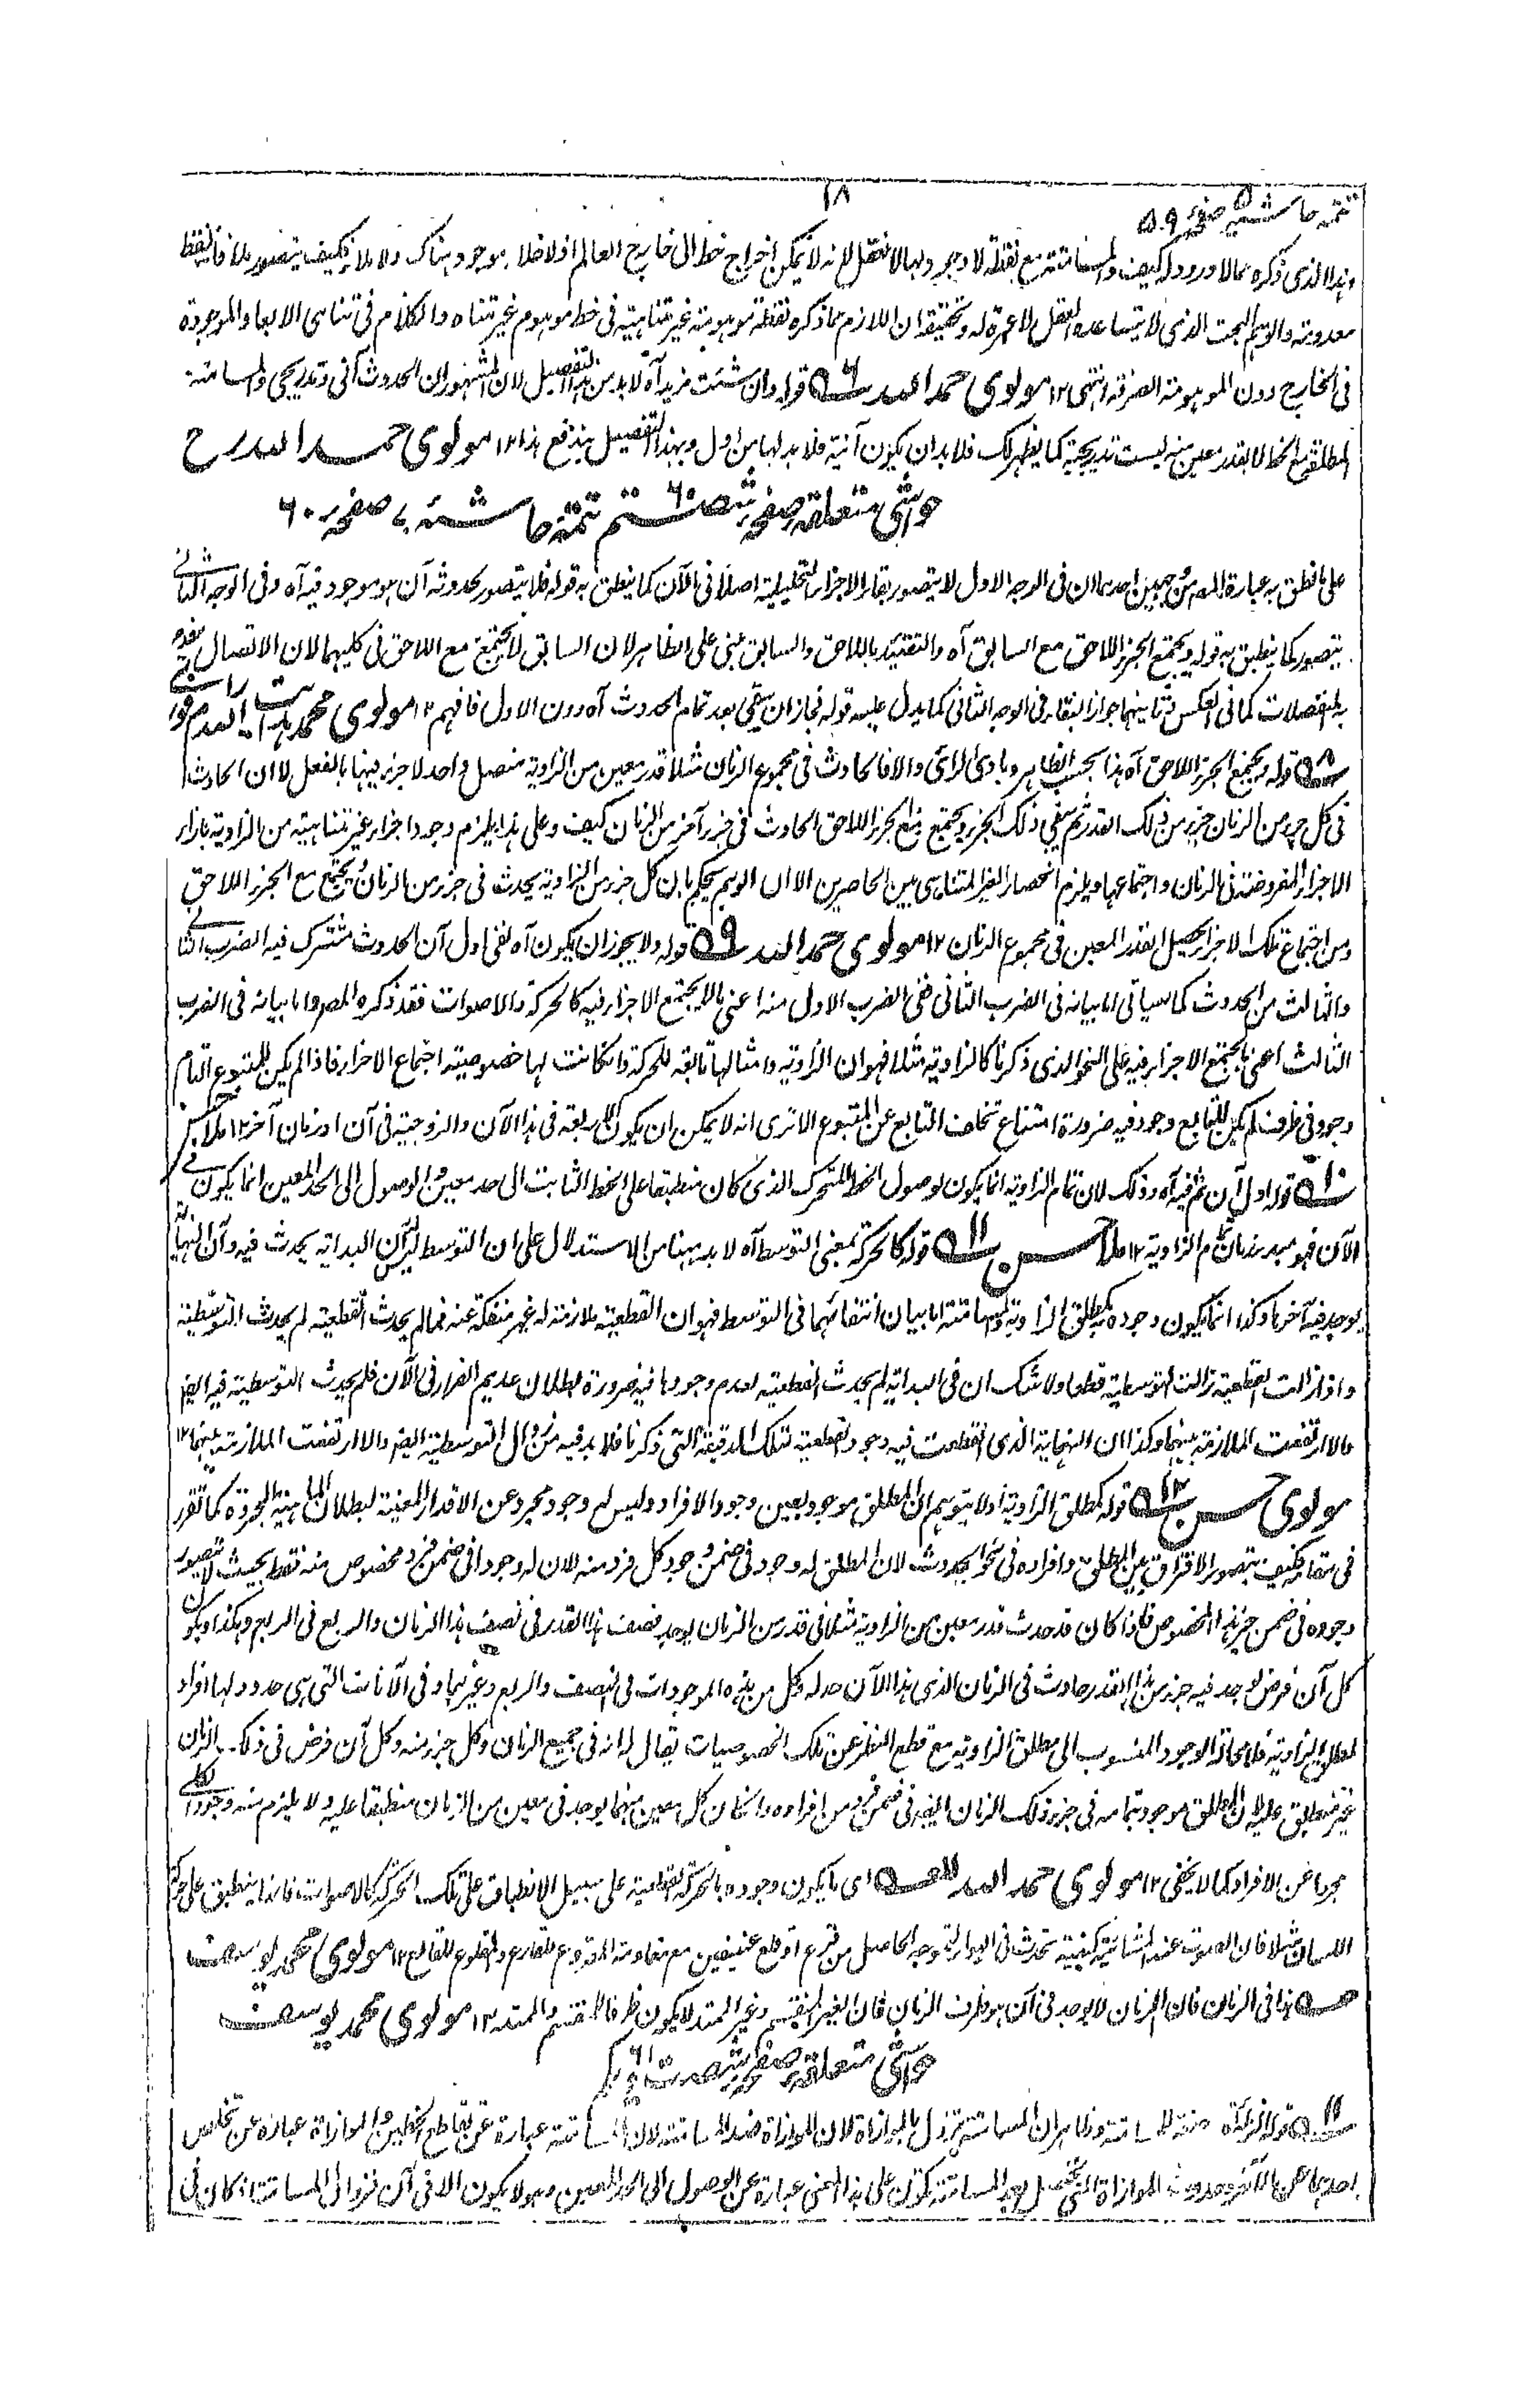 ۱۸
تتمه حاشیه ۵ صفحه ۵۹
وہذا الذی ذکرہ مما لا ورود لہ کیف والمسامتۃ مع نقطۃ لا وجود لہا لا تعقل لانہ لا یمکن اخراج خط الی خارج العالم اذ لا خلاء موجود ہناک ولا ملاء فکیف یتصور ملاقاۃ نقطۃ
معدومۃ والوہم البحت الذی لا یساعدہ العقل لا عبرۃ لہ وتحقیقہ ان اللازم مما ذکرہ نقطۃ موہومۃ غیر متناہیۃ فی خط موہوم غیر متناہ والکلام فی تناہی الابعاد الموجودۃ
فی الخارج دون الموہومۃ الصرفۃ انتہی ۱۲ مولوی حمد اللہ رح ۶ قولہ وان شئت مزید آہ لا بد من ہذا التفصیل لان المشہور ان الحدوث آنی وتدریجی والمسامتۃ
المطلقۃ مع الخط لا بقدر معین منہ لیست تدریجیۃ کما یظہر لک فلا بد ان یکون آنیۃ فلا بد لہا من اول وبہذا التفصیل یندفع ہذا ۱۲ مولوی حمد اللہ رح
حواشی متعلقہ صفحہ شصتم ۶۰ تتمہ حاشیہ ۷ صفحہ ۶۰
علی ما نطق بہ عبارۃ المصر من وجہین احدہما ان فی الوجہ الاول لا یتصور بقاء الاجزاء التحلیلیۃ اصلا فی الآن کما ینطق بہ قولہ فلا یتصور لحدوثہ آن ہو موجود فیہ آہ وفی الوجہ الثانی
یتصور کما ینطق بہ قولہ ویجتمع الجزء اللاحق مع السابق آہ والتقیید باللاحق والسابق مبنی علی الظاہر لان السابق لا یجتمع مع اللاحق فی کلیہما لان الاتصال
بالمنفصلات کما فی العکس وثانیہما جواز البقاء فی الوجہ الثانی کما یدل علیہ قولہ فجاز ان یبقی بعد تمام الحدوث آہ دون الاول فافہم ۱۲ مولوی محمد برکت اللہ
۸ قولہ ویجتمع الجزء اللاحق آہ ہذا بحسب الظاہر وبادی الرای والا فالحادث فی مجموع الزمان مثلا قدر معین من الزاویۃ متصل واحد لا جزء فیہا بالفعل لا ان الحادث
فی کل جزء من الزمان جزء من ذلک القدر ثم یبقی ذلک الجزء ویجتمع مع الجزء اللاحق الحادث فی جزء آخر من الزمان کیف وعلی ہذا یلزم وجود اجزاء غیر متناہیۃ من الزاویۃ بازاء
الاجزاء المفروضۃ فی الزمان واجتماعہا ویلزم انحصار الغیر المتناہی بین الحاصرین الا ان الوہم یحکم بان کل جزء من الزاویۃ یحدث فی جزء من الزمان ویجتمع مع الجزء اللاحق
ومن اجتماع تلک الاجزاء یحصل القدر المعین فی مجموع الزمان ۱۲ مولوی حمد اللہ ۹ قولہ ولا یجوز ان یکون آہ نفی اول آن الحدوث مشترک فیہ الضرب الثانی
والثالث من الحدوث کما سیاتی اما بیانہ فی الضرب الثانی ففی الضرب الاول منہ اعنی ما لا یجتمع الاجزاء فیہ کالحرکۃ والاصوات فقد ذکرہ المصر واما بیانہ فی الضرب
الثالث اعنی ما یجتمع الاجزاء فیہ علی النحو الذی ذکرنا کالزاویۃ مثلا فہو ان الزاویۃ وامثالہا تابعۃ للحرکۃ وان کانت لہا خصوصیۃ اجتماع الاجزاء فاذا لم یکن للمتبوع التام
وجود فی ظرف لم یکن للتابع وجود فیہ ضرورۃ امتناع تخلف التابع عن المتبوع الا تری انہ لا یمکن ان یکون الاربعۃ فی ہذا الآن والزوجیۃ فی آن او زمان آخر ۱۲ ملا حسن
۱۰ قولہ اول آن تم فیہ آہ وذلک لان تمام الزاویۃ انما یکون لوصول الخط المتحرک الذی کان منطبقا علی الخط الثابت الی حد معین والوصول الی الحد المعین انما یکون فی
الآن فہو مبدء زمان تمام الزاویۃ ۱۲ ملا حسن ۱۱ قولہ کالحرکۃ بمعنی التوسط آہ لا بد ہہنا من الاستدلال علی ان التوسط لیس آن البدایۃ یحدث فیہ وآن النہایۃ
یوجد فیہ آخرہا وکذا انما یکون وجودہ کمطلق الزاویۃ والمسامتۃ اما بیان انتفائہما فی التوسط فہو ان القطعیۃ ملازمۃ لہ غیر منفکۃ عنہ فما لم یحدث القطعیۃ لم یحدث التوسطیۃ
واذا زالت القطعیۃ زالت التوسطیۃ قطعا ولا شک ان فی البدایۃ لم یحدث القطعیۃ لعدم وجودہا فیہ ضرورۃ بطلان عدیم القرار فی الآن فلم یحدث التوسطیۃ فیہ ایضا
والا ارتفعت الملازمۃ بینہما وکذا ان النہایۃ الذی انقطعت فیہ وجود القطعیۃ لتلک الدقیقۃ التی ذکرنا فلا بد فیہ من زوال التوسطیۃ ایضا والا ارتفعت الملازمۃ بینہما ۱۲
مولوی حسن ۱۲ قولہ کمطلق الزاویۃ اولا یتوہم ان المطلق موجود بعین وجود الافراد ولیس لہ وجود مجرد عن الاقدار المعینۃ لبطلان الماہیۃ المجردۃ کما تقرر
فی مقامہ فکیف یتصور الافتراق بین المطلق وافرادہ فی نحو الحدوث لان المطلق لہ وجود فی ضمن وجود کل فرد منہ لا ان لہ وجودا فی ضمن فرد مخصوص منہ فقط بحیث لا یتصور
وجودہ فی ضمن جزء ہذا المخصوص فاذا کان قد حدث قدر معین من الزاویۃ مثلا فی قدر من الزمان یوجد نصف ہذا القدر فی نصف ہذا الزمان والربع فی الربع وہکذا ویکون
کل آن فرض یوجد فیہ جزء من ہذا القدر حادث فی الزمان الذی ہذا الآن حد لہ وکل من ہذہ الموجودات فی النصف والربع وغیرہما وفی الآنات التی ہی حدود لہا افراد
لمطلق الزاویۃ فلا محالۃ الوجود المنسوب الی مطلق الزاویۃ مع قطع النظر عن تلک الخصوصیات یقال لہ انہ فی جمیع الزمان وکل جزء منہ وکل آن فرض فی ذلک الزمان
غیر منطبق علیہ لان المطلق موجود بتمامہ فی جزء ذلک الزمان ایضا فی ضمن فرد من افرادہ وان کان کل معین منہا یوجد فی معین من الزمان منطبقا علیہ ولا یلزم منہ وجود الکلی
مجردا عن الافراد کما لا یخفی ۱۲ مولوی حمد اللہ ۱۳ ای ما یکون وجودہ بالحرکۃ القطعیۃ علی سبیل الانطباق علی تلک الحرکۃ کالاصوات فانہا ینطبق علی حرکۃ
اللسان مثلا فان الصوت عند المشائیۃ کیفیۃ تحدث فی الہواء لتموجہ الحاصل من قرع او قلع عنیفین مع مقاومۃ المقروع للقارع والمقلوع للقالع ۱۲ مولوی محمد یوسف
ہذا فی الزمان فان الزمان لا یوجد فی آن ہو طرف الزمان فان الغیر المنقسم وغیر الممتد لا یکون ظرفا للمنقسم والممتد ۱۲ مولوی محمد یوسف
حواشی متعلقہ صفحہ شصت و یکم ۶۱
۱۱ قولہ الزائلۃ صفۃ للمسامتۃ وظاہر ان المسامتۃ تزول بالموازاۃ لان الموازاۃ ضد المسامتۃ لان المسامتۃ عبارۃ عن تقاطع الخطین والموازاۃ عبارۃ عن تخلص
احدہما عن الآخر وحدوث الموازاۃ التی تحصل بعد المسامتۃ یکون علی ہذا المعنی عبارۃ عن الوصول الی الحد المعین وہو لا یکون الا فی آن فزوال المسامتۃ کان فی